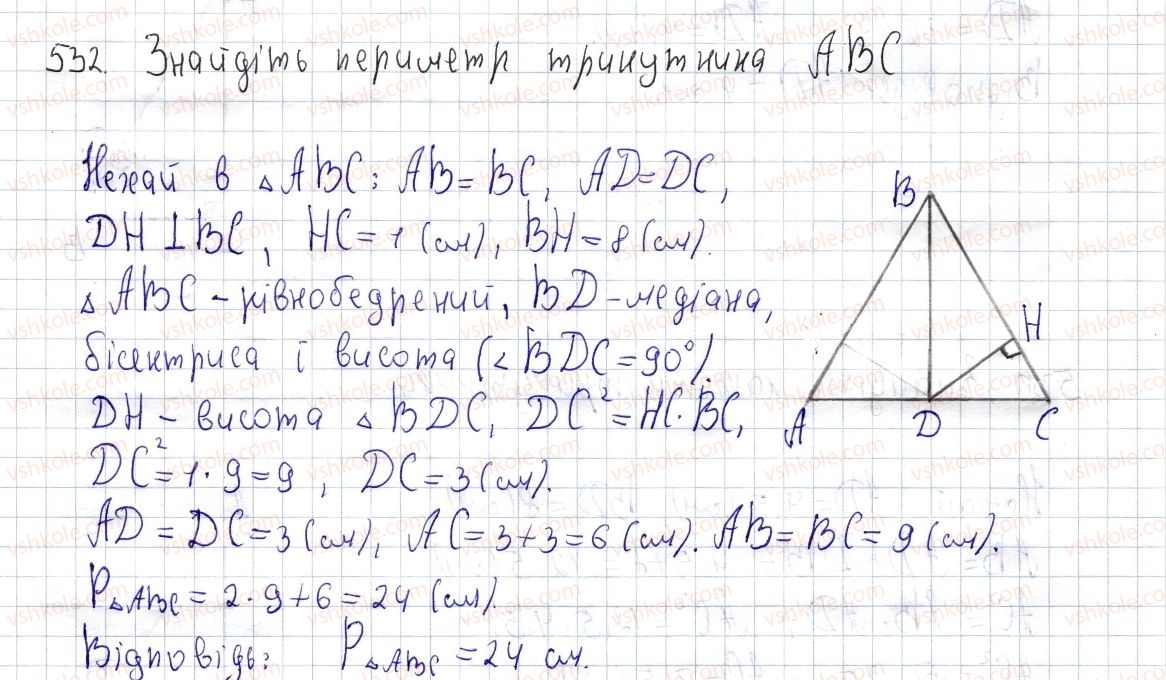 532. Знайдіть периметр трикутника ABC
Нехай в △ABC: AB = BC, AD = DC,
DH ⊥ BC, HC = 1 (см), BH = 8 (см).
△ABC – рівнобедрений, BD – медіана,
бісектриса і висота (∠BDC = 90°).
DH – висота △BDC, DC² = HC · BC,
DC² = 1 · 9 = 9, DC = 3 (см).
AD = DC = 3 (см), AC = 3 + 3 = 6 (см). AB = BC = 9 (см).
P△ABC = 2 · 9 + 6 = 24 (см).
Відповідь: P△ABC = 24 см.
B
H
A
D
C
vshkole.com